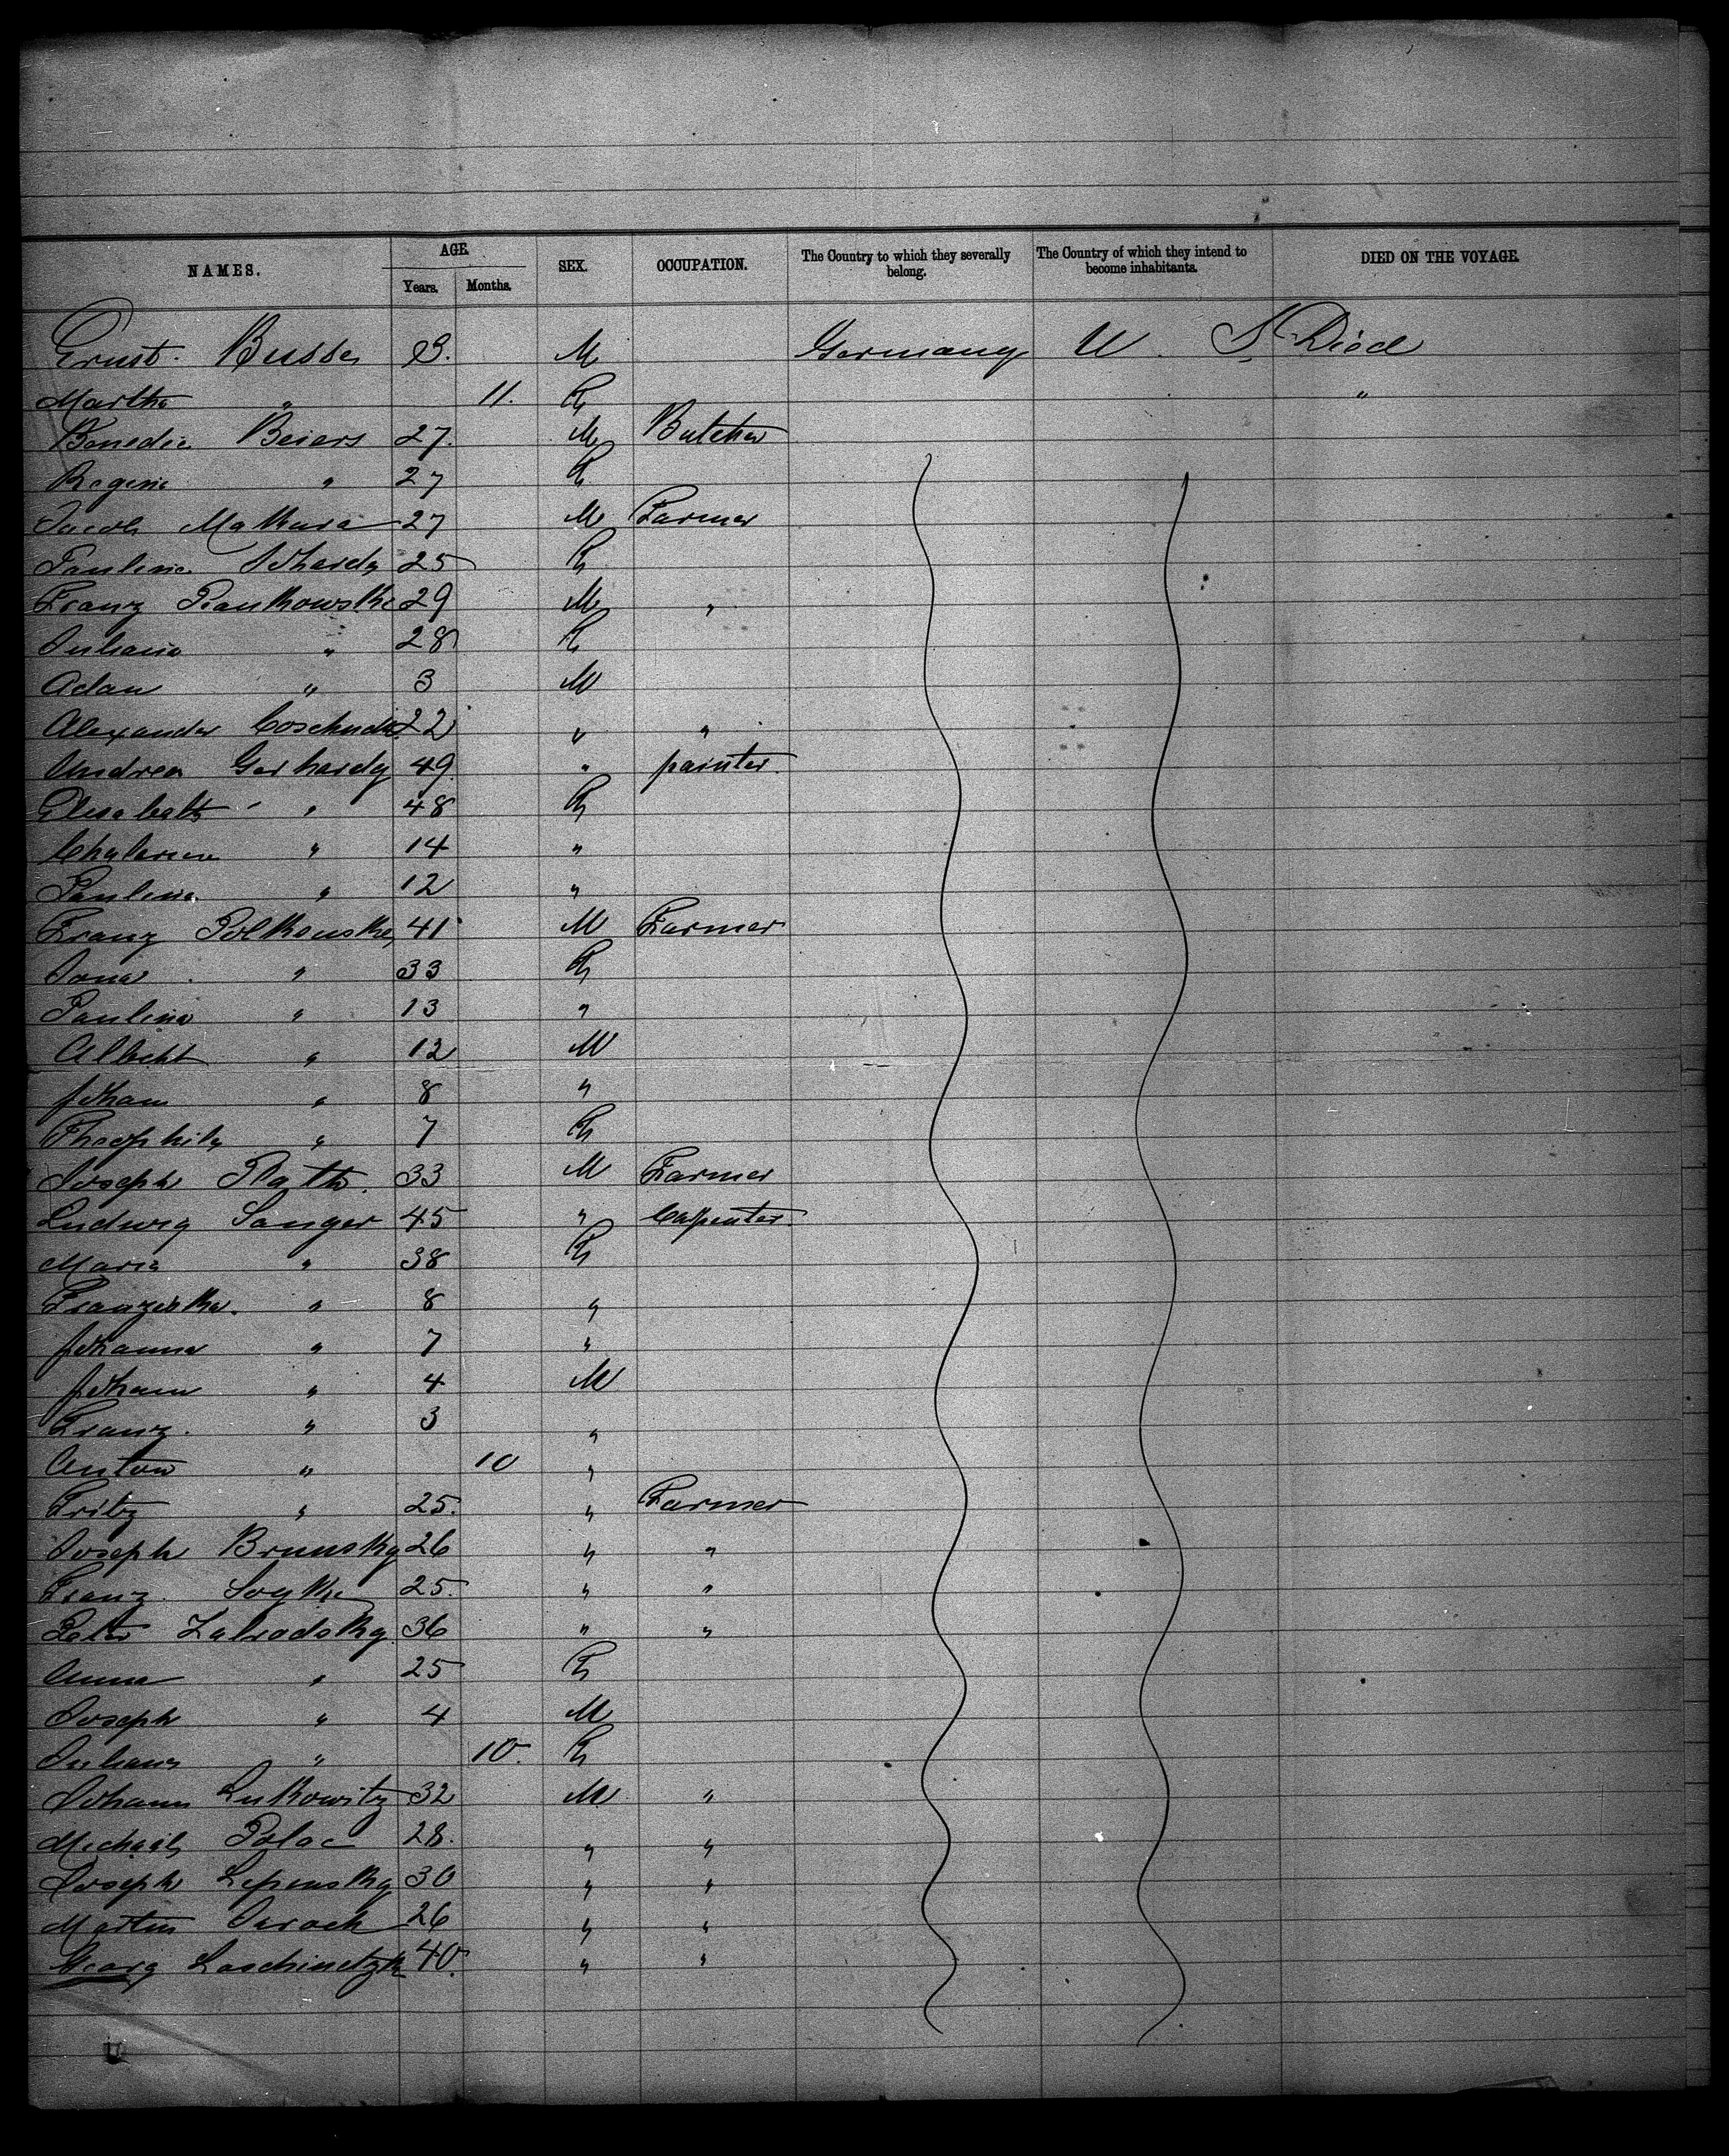 NAMES. AGE. Years. Months. SEX. OCCUPATION. The Country to which they severally belong. The Country of which they intend to become inhabitants. DIED ON THE VOYAGE.
Ernst Busse 3. M Germany U. S. Died
Martha " 11. F "
Benedic Beiers 27. M Butcher
Regine " 27 F
Jacob Mathura 27 M Farmer
Pauline 25 F
Franz 29 M "
Juliana " 28 F
Adam " 3 M
Alexander 22 " "
Andrea Gerhardy 49 " painter.
Elisabeth " 48 F
" 14 "
Paulina " 12 "
Franz Polkowske 41 M Farmer
" 33 F
Paulina " 13 "
Albecht " 12 M
Johann " 8 "
Theophila " 7 F
Joseph Plath. 33 M Farmer
Ludwig Sanger 45 " Carpenter.
Maria " 38 F
Franziska. " 8 "
Johanna " 7 "
Johann " 4 M
Franz. " 3 "
Anton " 10 "
Fritz " 25. " Farmer
Joseph Brunsky 26 " "
Franz. Soyke 25. " "
Peter Zabrodsky 36 " "
Anna " 25 F
Joseph " 4 M
Juliana " 10. F
Johann Lukowitz 32 M "
Michael Polac 28. " "
Joseph Lepensky 30 " "
Martin Jarock 26 " "
Georg 40. " "